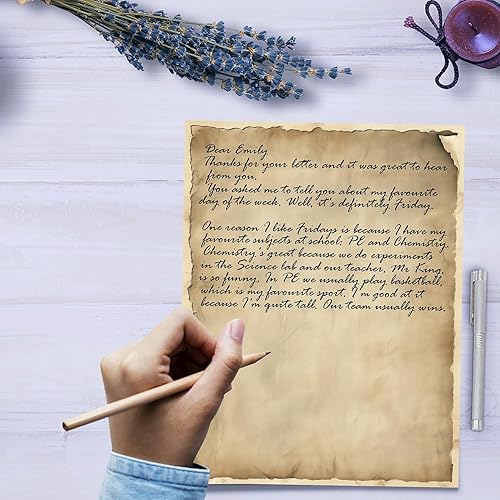 Dear Emily
Thanks for your letter and it was great to hear
from you.
You asked me to tell you about my favourite
day of the week. Well, it's definitely Friday.
One reason I like Fridays is because I have my
favourite subjects at school: PE and Chemistry.
Chemistry's great because we do experiments
in the Science lab and our teacher, Mr King,
is so funny. In PE we usually play basketball,
which is my favourite sport. I'm good at it
because I'm quite tall. Our team usually wins.